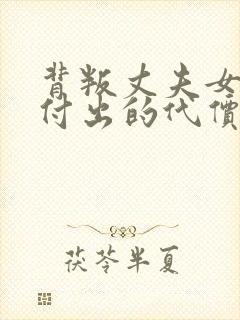 背叛丈夫女
付出的代價
茯苓半夏